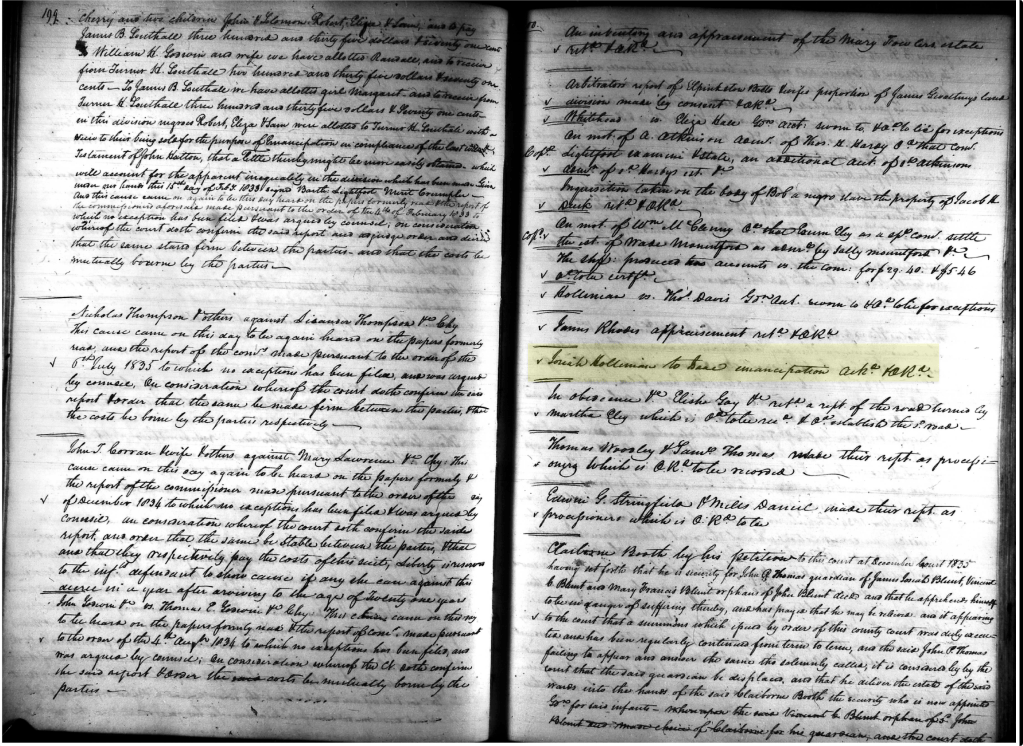 199.
Cherry and two children John & Solomon Robert, Eliza & Sam, and to pay
James B. Southall three hundred and thirty five dollars & seventy one cents
To William H. Goswin and wife we have allotted Randall, and to receive
from Turner H. Southall two hundred and thirty five dollars & seventy one
cents – To James B. Southall we have allotted girl Margaret and to receive from
Turner H. Southall three hundred and thirty five dollars & Seventy one cents
in this division negroes Robert, Eliza & Sam were allotted to Turner H. Southall with a
view to their being sold for the purpose of Emancipation in compliance of the last will &
Testament of John Hatton, that a title thereby might be more easily obtained which
will account for the apparent inequality in the division which has been made Given
under our hands this 15th day of Feby. 1833 signed Barth. Lightfoot,
And this cause came on again to be this day heard on the papers formerly read the report of
the commissioners aforesaid made pursuant to the order of the of February 1833 to
which no exception has been filed & was argued by counsel, on consideration
whereof the court doth confirm the said report and adjudge order and decree
that the same stand firm between the parties and that the costs be
mutually bourne by the parties –
Nicholas Thompson & others against Thompson &c Chy
This cause came on this day to be again heard on the papers formerly
read, and the report of the comrs. made pursuant to the order of the
6th. July 1835 to which no exceptions has been filed and was argued
by counsel, On consideration whereof the court doth confirm the said
report & order that the same be made firm between the parties, & that
the costs be borne by the parties respectively –
John T. Corran & wife & others against Mary Lawrence &c Chy: This
cause came on this day again to be heard on the papers formerly &
the report of the commissioner made pursuant to the order of the
of December 1834 to which no exceptions has been filed & was argued by
counsel, on consideration whereof the court doth confirm the said
report, and order that the same be stable between the parties, & that
and that they respectively pay the costs of this suit, Liberty is reserved
to the inft. defendant to shew cause if any she can against this
decree in a year after arriving to the age of twenty one years
John Goswin &c vs Thomas E. Goswin &c Chy – This came on this day
to be heard on the papers formerly read & the report of comr. made pursuant
to the order of the 4th Augt. 1834 to which no exceptions has been filed, and
was argued by counsel; On consideration whereof the Ct. doth confirm
the said report & order the costs be mutually borne by the
parties –
An inventory and appraisement of the Mary Fowlers estate
retd. & ORd.
Arbitrators report of Batts wifes proportion of James Gwaltneys land
division made by consent & ORd.
Whitehead vs Eliza Hall Gdn acct: sworn to & Od. to lie for exceptions
On mot. of A. Atkinson admr. of Thos. H. Hardy Od. that comr.
Copd. Lightfoot examine & state, an additional acct. of sd. Atkinsons
admr. of sd. Hardys est. &c
Inquisition taken on the body of Bob a negro slave the property of Jacob H.
Duck retd. & ORd.
Copd. On mot. of Wm. McClenny Od. that Ely as a spl. comr. settle
the est. of Wade Mountford as admr. by Sally Mountford &c
The shff. produced his accounts vs. the com: for $29.40. & $5.46
Od. to be certfd.
Holleman vs. Thos. Davis Gdn Act. sworn to & Od. to lie for exceptions
James Rhodes appraisement retd. & ORd.
Josiah Holleman to deed emancipation ackd. & ORd. –
In obedience &c Elisha Gay &c retd. a rept of the road turned by
Martha Ely which is Od. to be recd. & Od. establish the sd. road –
Thomas Woosley & Saml. Thomas made their rept as processi-
oners which is ORd. to be recorded –
Edwin G. Stringfield & Miles Daniel made their rept as
processioners which is O.Rd. to be
Claiborne Booth by his petition to this court at December Court 1835
having set forth that he is security for John P. Thomas guardian of James Josiah Blunt, Vincent
C. Blunt and Mary Francis Blunt orphans of John Blunt decd. and that he apprehends himself
to be in danger of suffering thereby, and has prayed that he may be relieved. and it appearing
to the court that a summons which issued by order of this county court was duly execu-
ted and has been regularly continued from term to term, and the said John P. Thomas
failing to appear and answer the same tho solemnly called, it is considered by the
court that the said guardian be displaced, and that he deliver the estate of the said
wards into the hands of the said Claiborne Booth the security who is now appointed
Gdn. for said infants – whereupon the said Vincent C. Blunt orphan of sd. John
Blunt and made choice of Claiborne for his guardian, and the court doth